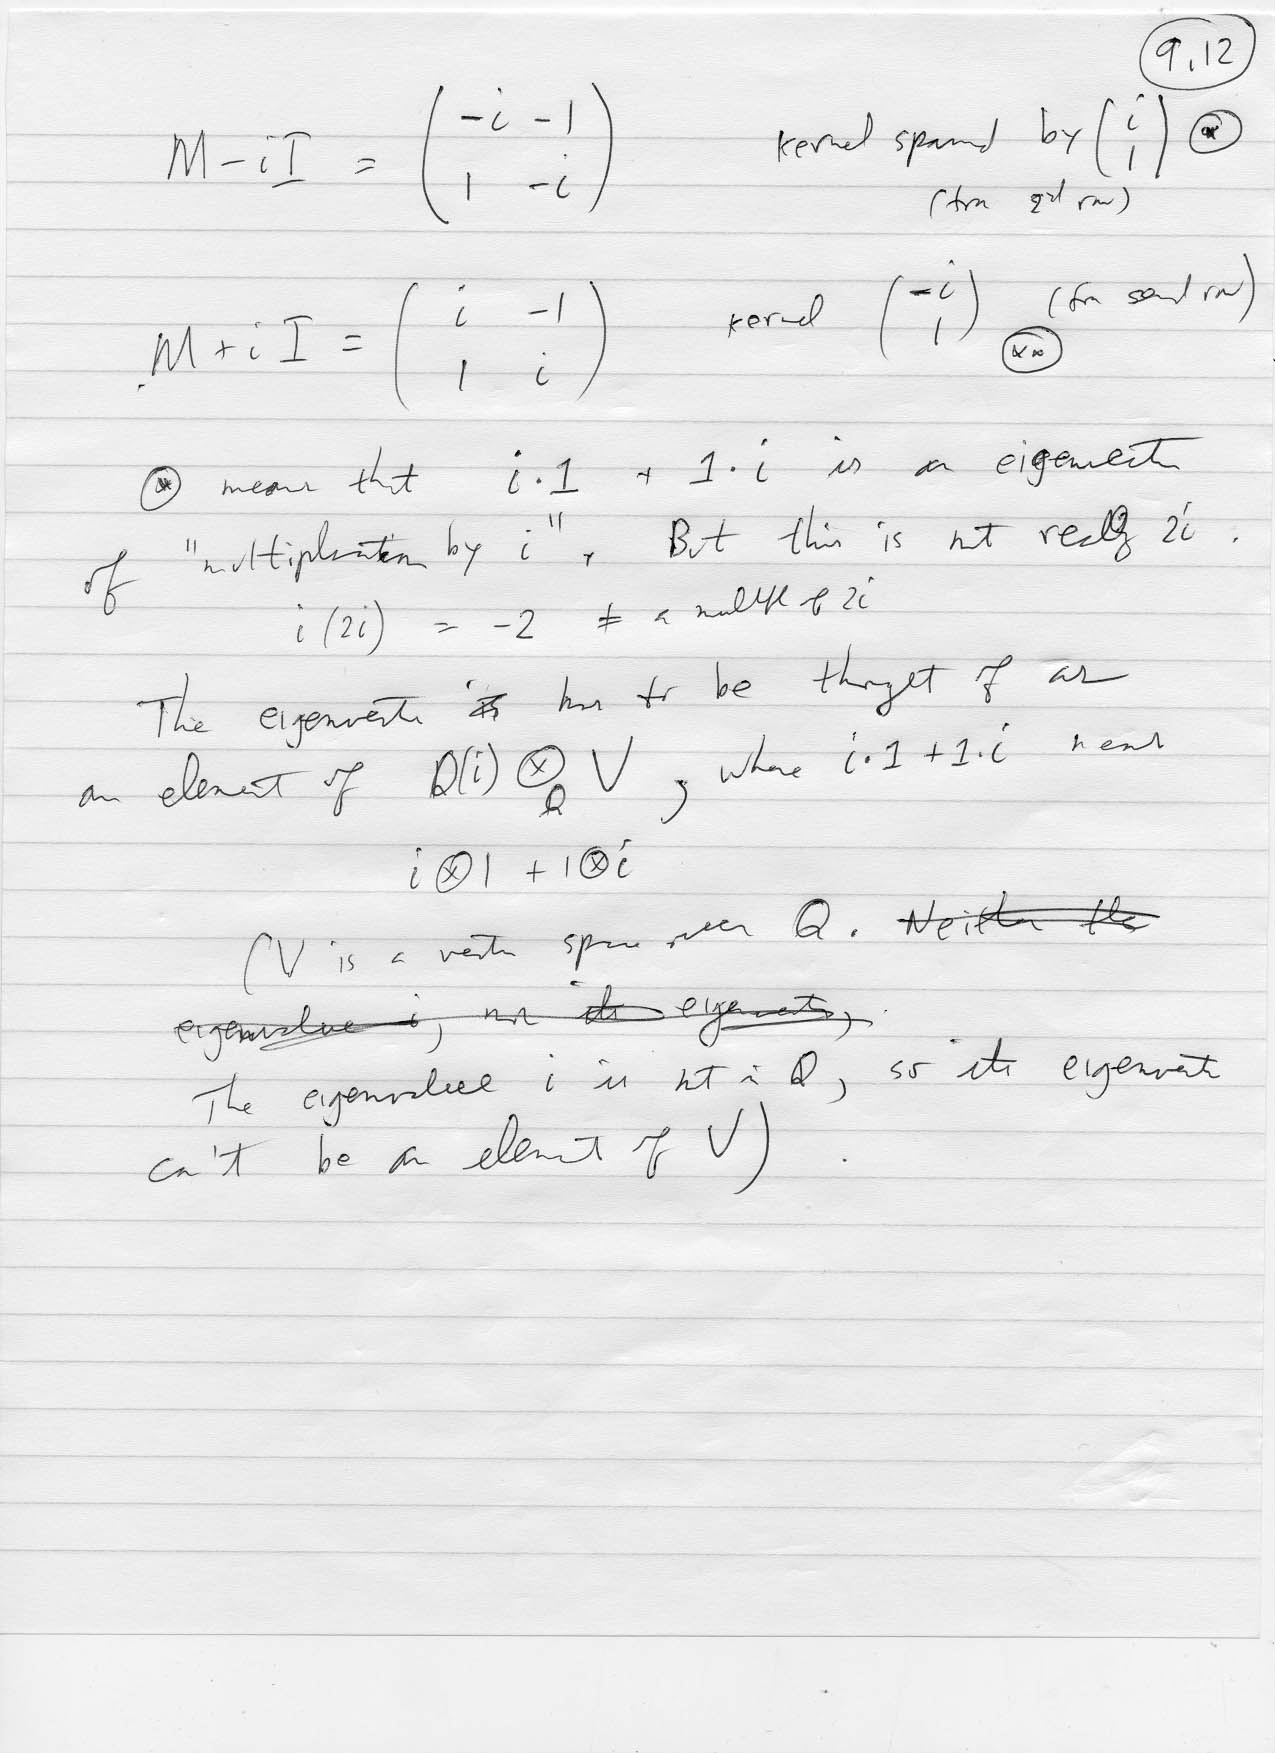 9.12
M - iI = ( -i -1 ; 1 -i ) kernel spanned by ( i ; 1 ) (*)
(from 2nd row)
M + iI = ( i -1 ; 1 i ) kernel ( -i ; 1 ) (from second row)
(**)
(*) means that i·1 + 1·i is an eigenvector
of "multiplication by i". But this is not really 2i.
i(2i) = -2 ≠ a multiple of 2i
The eigenvector has to be thought of as
an element of Q(i) ⊗_Q V, where i·1 + 1·i means
i⊗1 + 1⊗i
(V is a vector space over Q. Neither the
eigenvalue i, nor its eigenvector,
The eigenvalue i is not in Q, so its eigenvector
can't be an element of V).